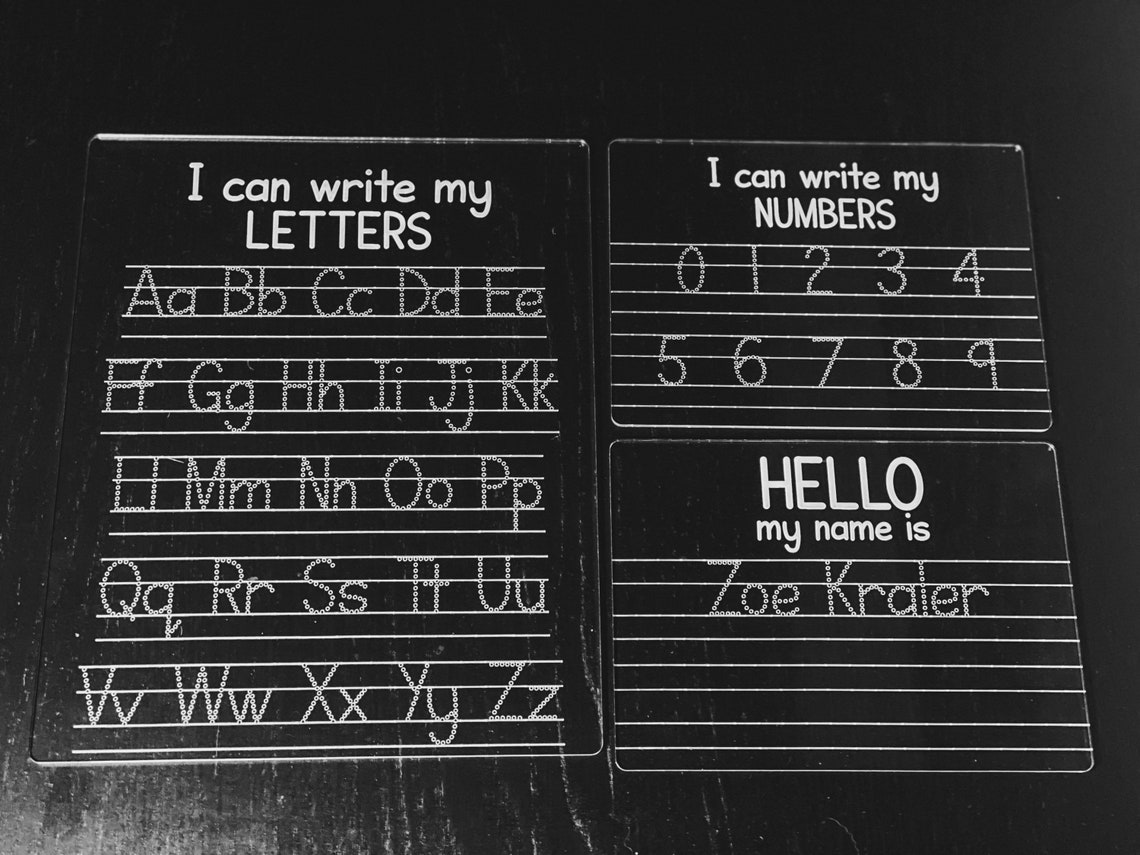 I can write my
LETTERS
Aa Bb Cc Dd Ee
Ff Gg Hh Ii Jj Kk
Ll Mm Nn Oo Pp
Qq Rr Ss Tt Uu
Vv Ww Xx Yy Zz
I can write my
NUMBERS
0 1 2 3 4
5 6 7 8 9
HELLO
my name is
Zoe Kraler